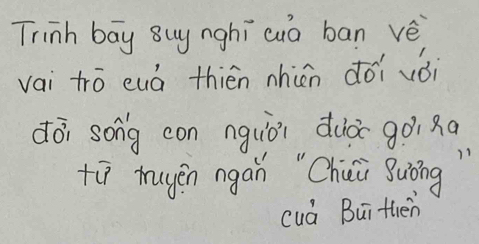 Trình bày suy nghĩ của bạn về
vai trò của thiên nhiên đối với
đời sống con người được gợi ra
từ truyện ngắn "Chiều Sương"
của Bùi Hiển